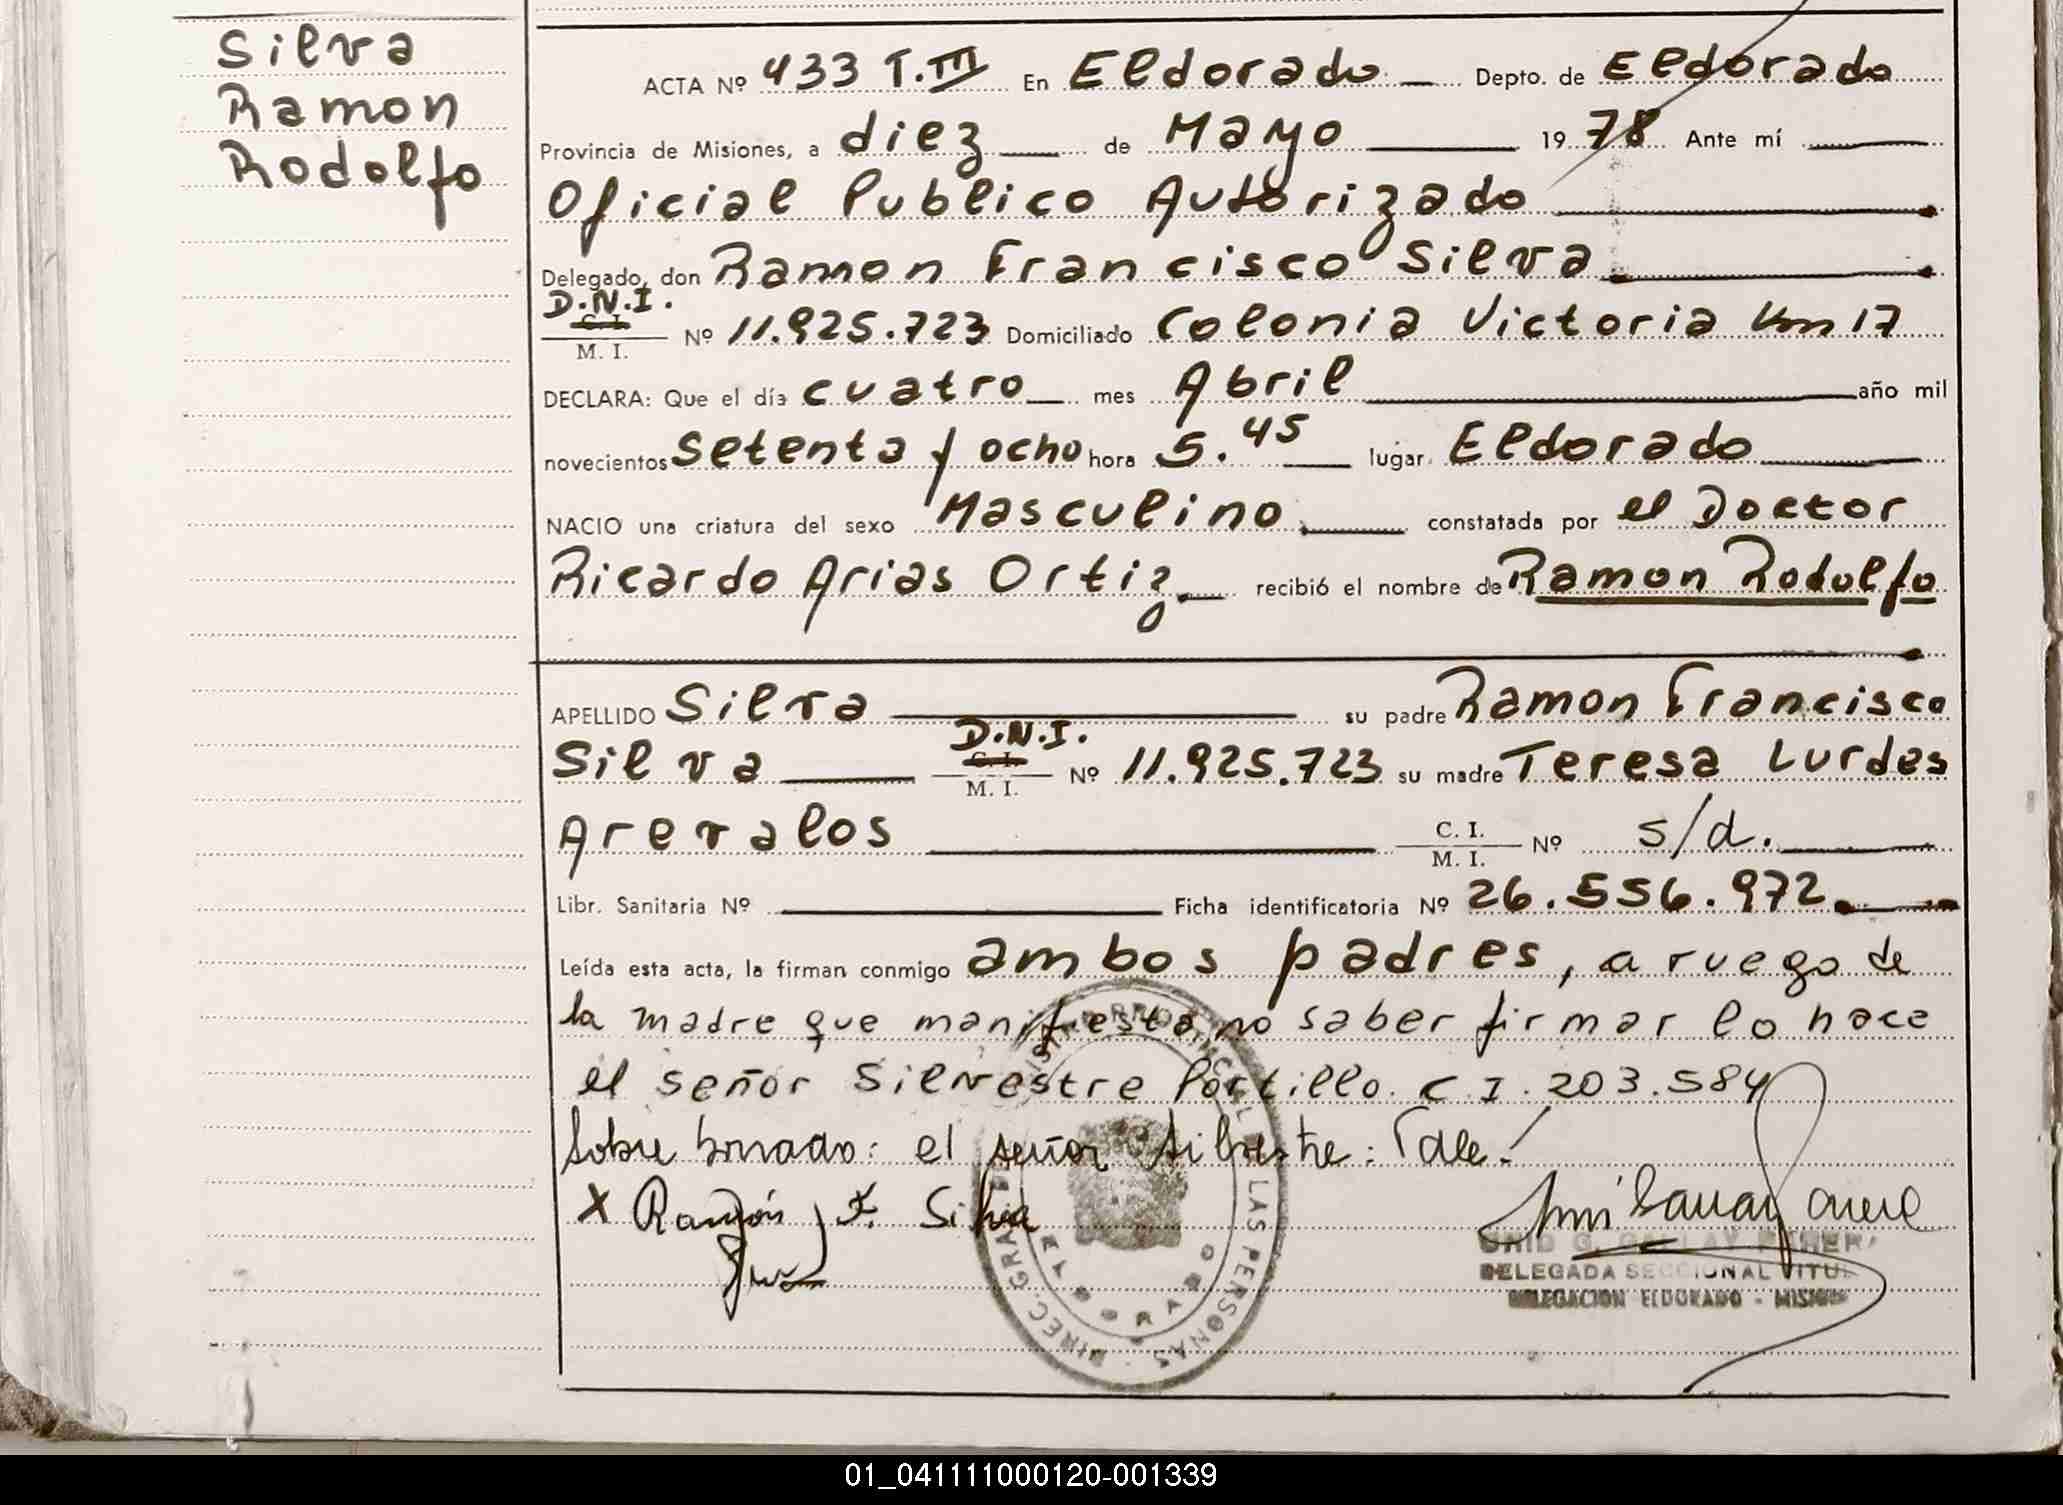 Silva
Ramon
Rodolfo
ACTA Nº 433 T.III En Eldorado Depto. de Eldorado
Provincia de Misiones, a diez de Mayo 1978 Ante mí
Oficial Publico Autorizado
Delegado, don Ramon Francisco Silva
D.N.I.
C. I.
M. I. Nº 11.925.723 Domiciliado Colonia Victoria Km 17
DECLARA: Que el día cuatro mes Abril año mil
novecientos setenta y ocho hora 5.45 lugar Eldorado
NACIO una criatura del sexo Masculino constatada por el Doctor
Ricardo Arias Ortiz recibió el nombre de Ramon Rodolfo
APELLIDO Silva su padre Ramon Francisco
Silva D.N.I. C. I. M. I. Nº 11.925.723 su madre Teresa Lurdes
Arevalos C. I. M. I. Nº s/d.
Libr. Sanitaria Nº Ficha identificatoria Nº 26.556.972.
Leída esta acta, la firman conmigo ambos padres, a ruego de
la madre que manifiesta no saber firmar lo hace
el señor Silvestre Portillo C I. 203.584
Sobre borrado: el señor Silvestre: Vale!
X Ramón F. Silva
DELEGADA SECCIONAL TITU
DELEGACION ELDORADO - MISIONES
DIREC. GRAL. LAS PERSONAS
ELDORADO
01_041111000120-001339